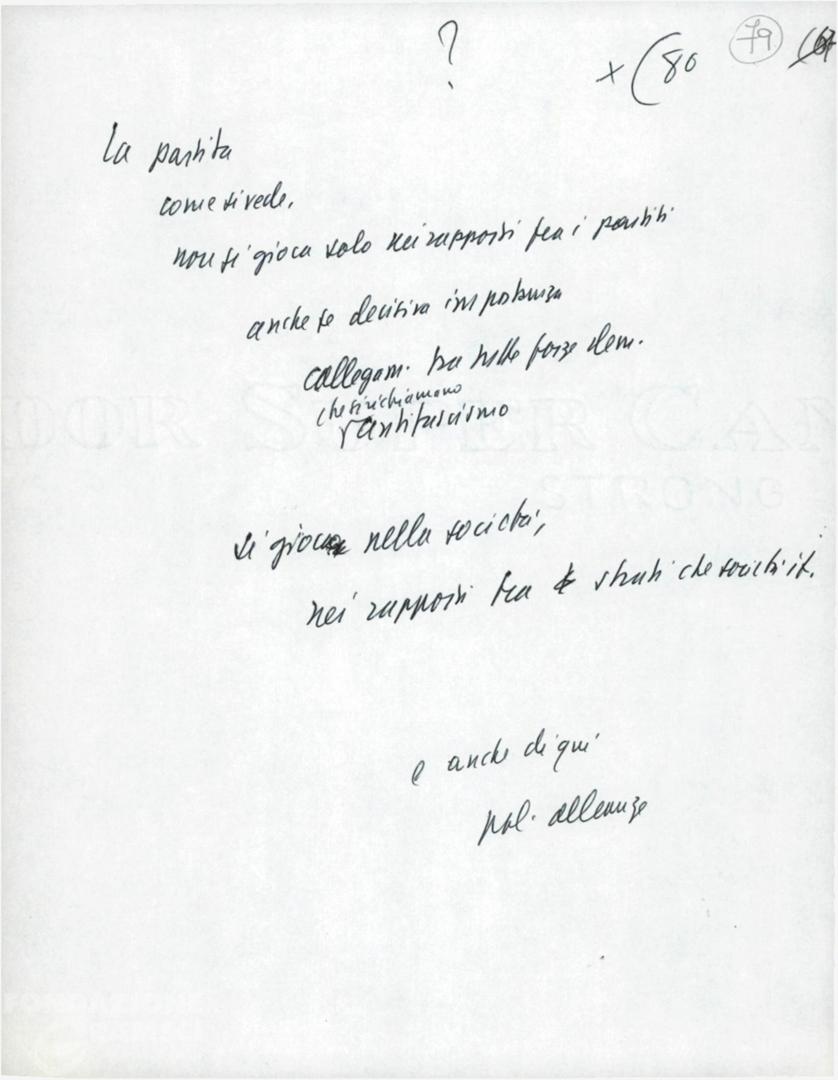 ?
x (80 79
La partita
come si vede,
non si gioca solo nei rapporti fra i partiti
anche se decisiva importanza
collegam. tra tutte forze dem.
che si richiamano
antifascismo
si gioca nella società,
nei rapporti fra strati che società it.
e anche di qui
pol. alleanze
NOK SUPER CA
STRONG
FONDAZIONE